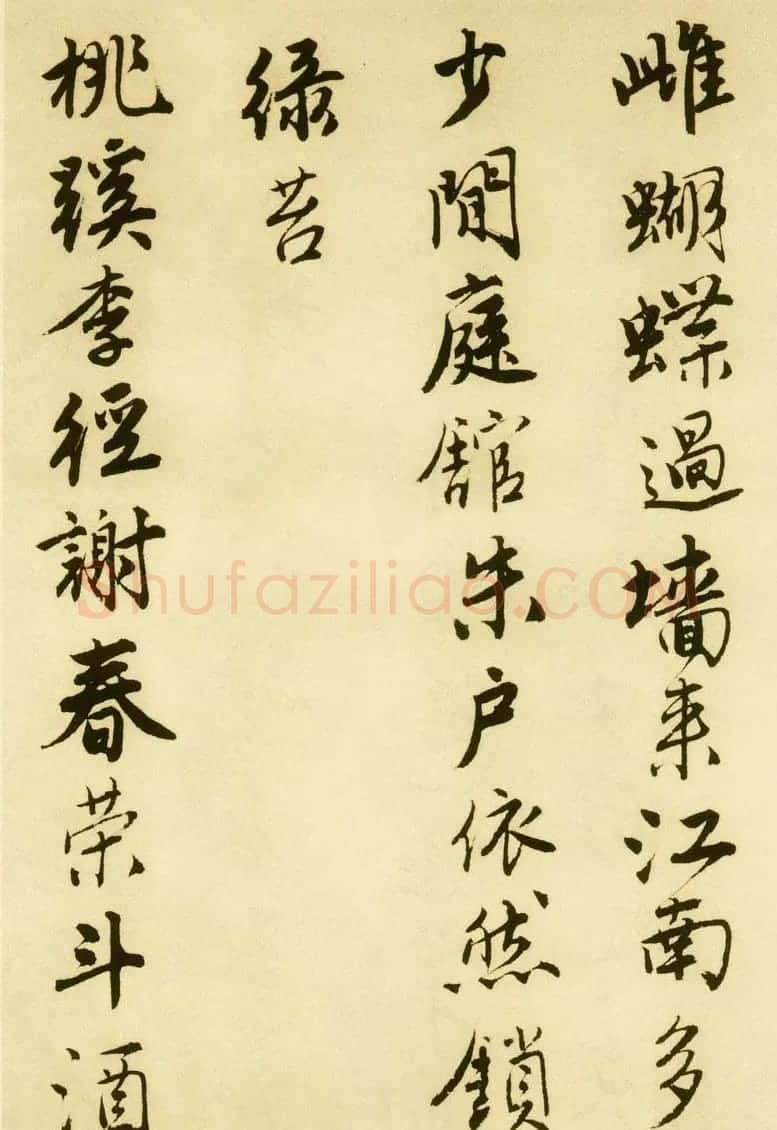 雌蝴蝶過墙来江南多
少閒庭館朱户依然鎖
緑苔
桃蹊李徑謝春荣斗酒
Shufaziliao.COM